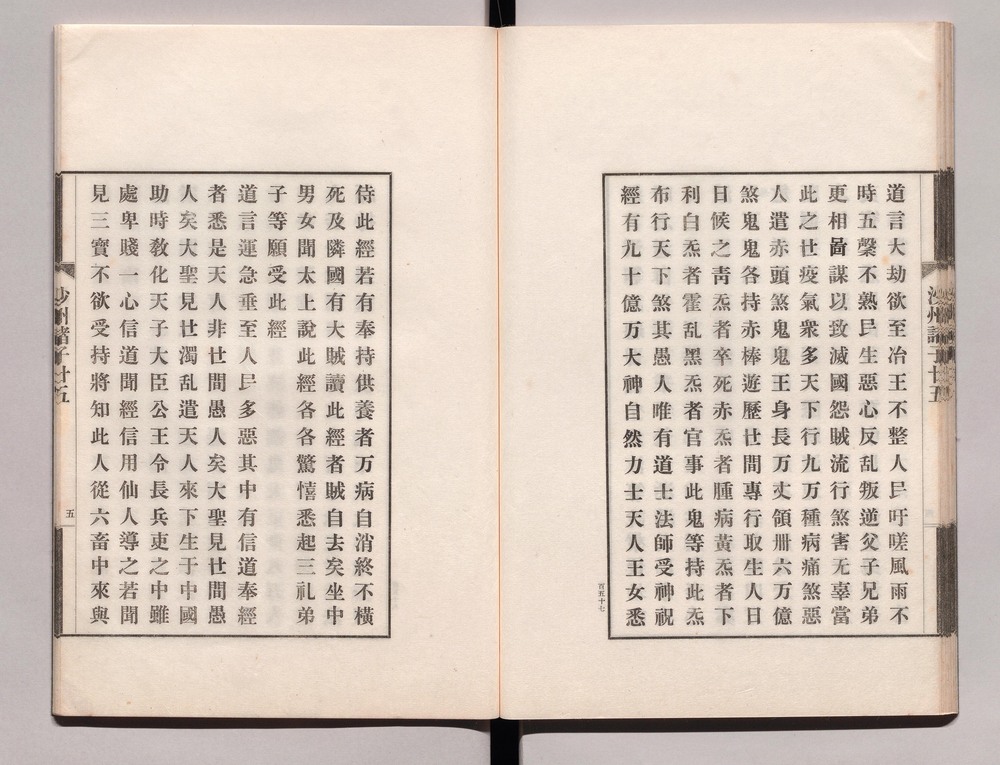 道言大劫欲至治王不整人民吁嗟風雨不
時五糓不熟民生惡心反乱叛逆父子兄弟
更相啚謀以致滅國怨賊流行煞害无辜當
此之世疫氣衆多天下行九万種病病煞惡
人遣赤頭煞鬼鬼王身長万丈領卅六万億
煞鬼鬼各持赤棒遊歷世間專行取生人日
日候之靑炁者卒死赤炁者腫病黃炁者下
利白炁者霍乱黑炁者官事此鬼等持此炁
布行天下煞其愚人唯有道士法師受神祝
經有九十億万大神自然力士天人王女悉
百五十七
沙州諸子廿五
侍此經若有奉持供養者万病自消終不橫
死及隣國有大賊讀此經者賊自去矣坐中
男女聞太上說此經各各驚憘悉起三礼弟
子等願受此經
道言運急垂至人民多惡其中有信道奉經
者悉是天人非世間愚人矣大聖見世間愚
人矣大聖見世濁乱遣天人來下生于中國
助時敎化天子大臣公王令長兵吏之中雖
處卑賤一心信道聞經信用仙人導之若聞
見三寶不欲受持將知此人從六畜中來與
沙州諸子廿五
五